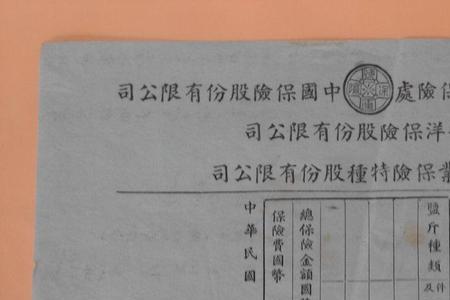 保險處 中國保險股份有限公司
洋保險股份有限公司
業保險特種股份有限公司
鹽斤種類
及件
總保險金額國
保險費國幣
中華民國